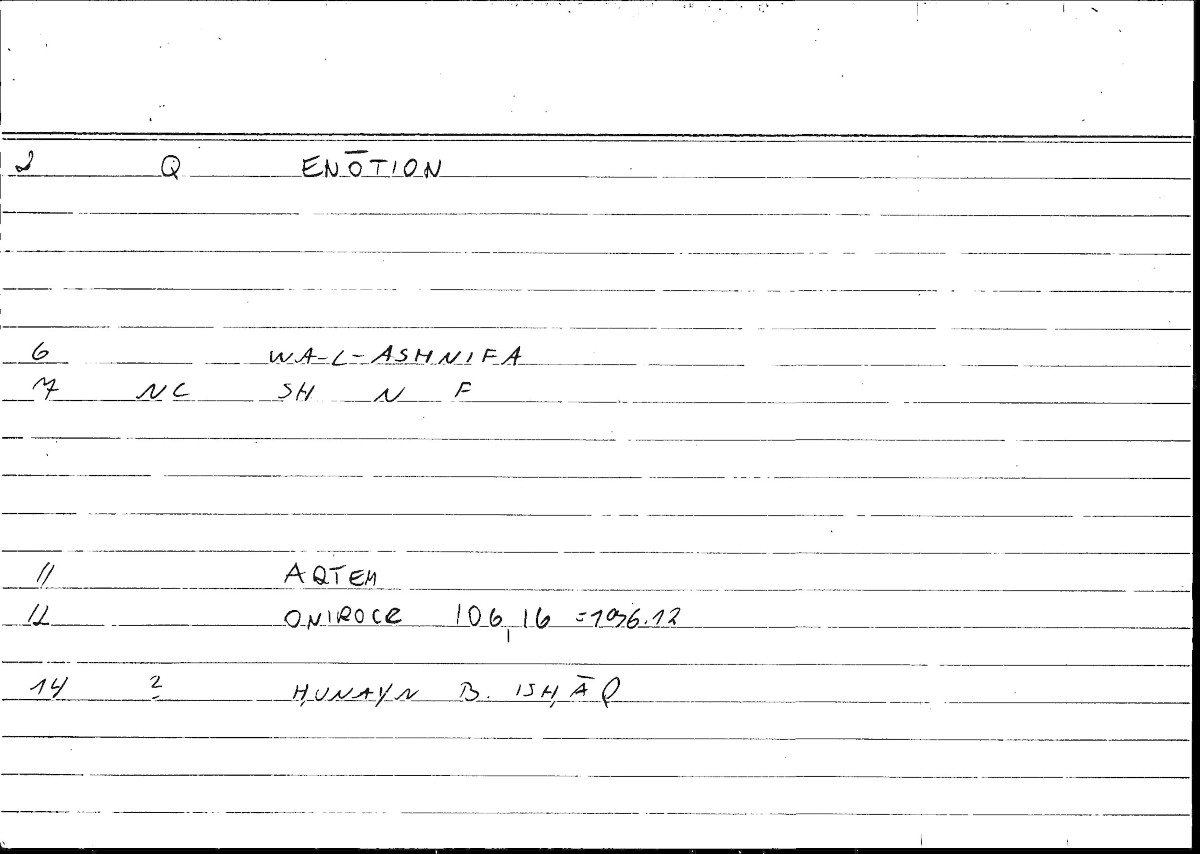 2 Q ENŌTION
6 WA-L-ASHNIFA
7 NC SH N F
11 ARTEM
12 ONIROCR 106,16 =196.12
14 2 ḤUNAYN B. ISḤĀQ